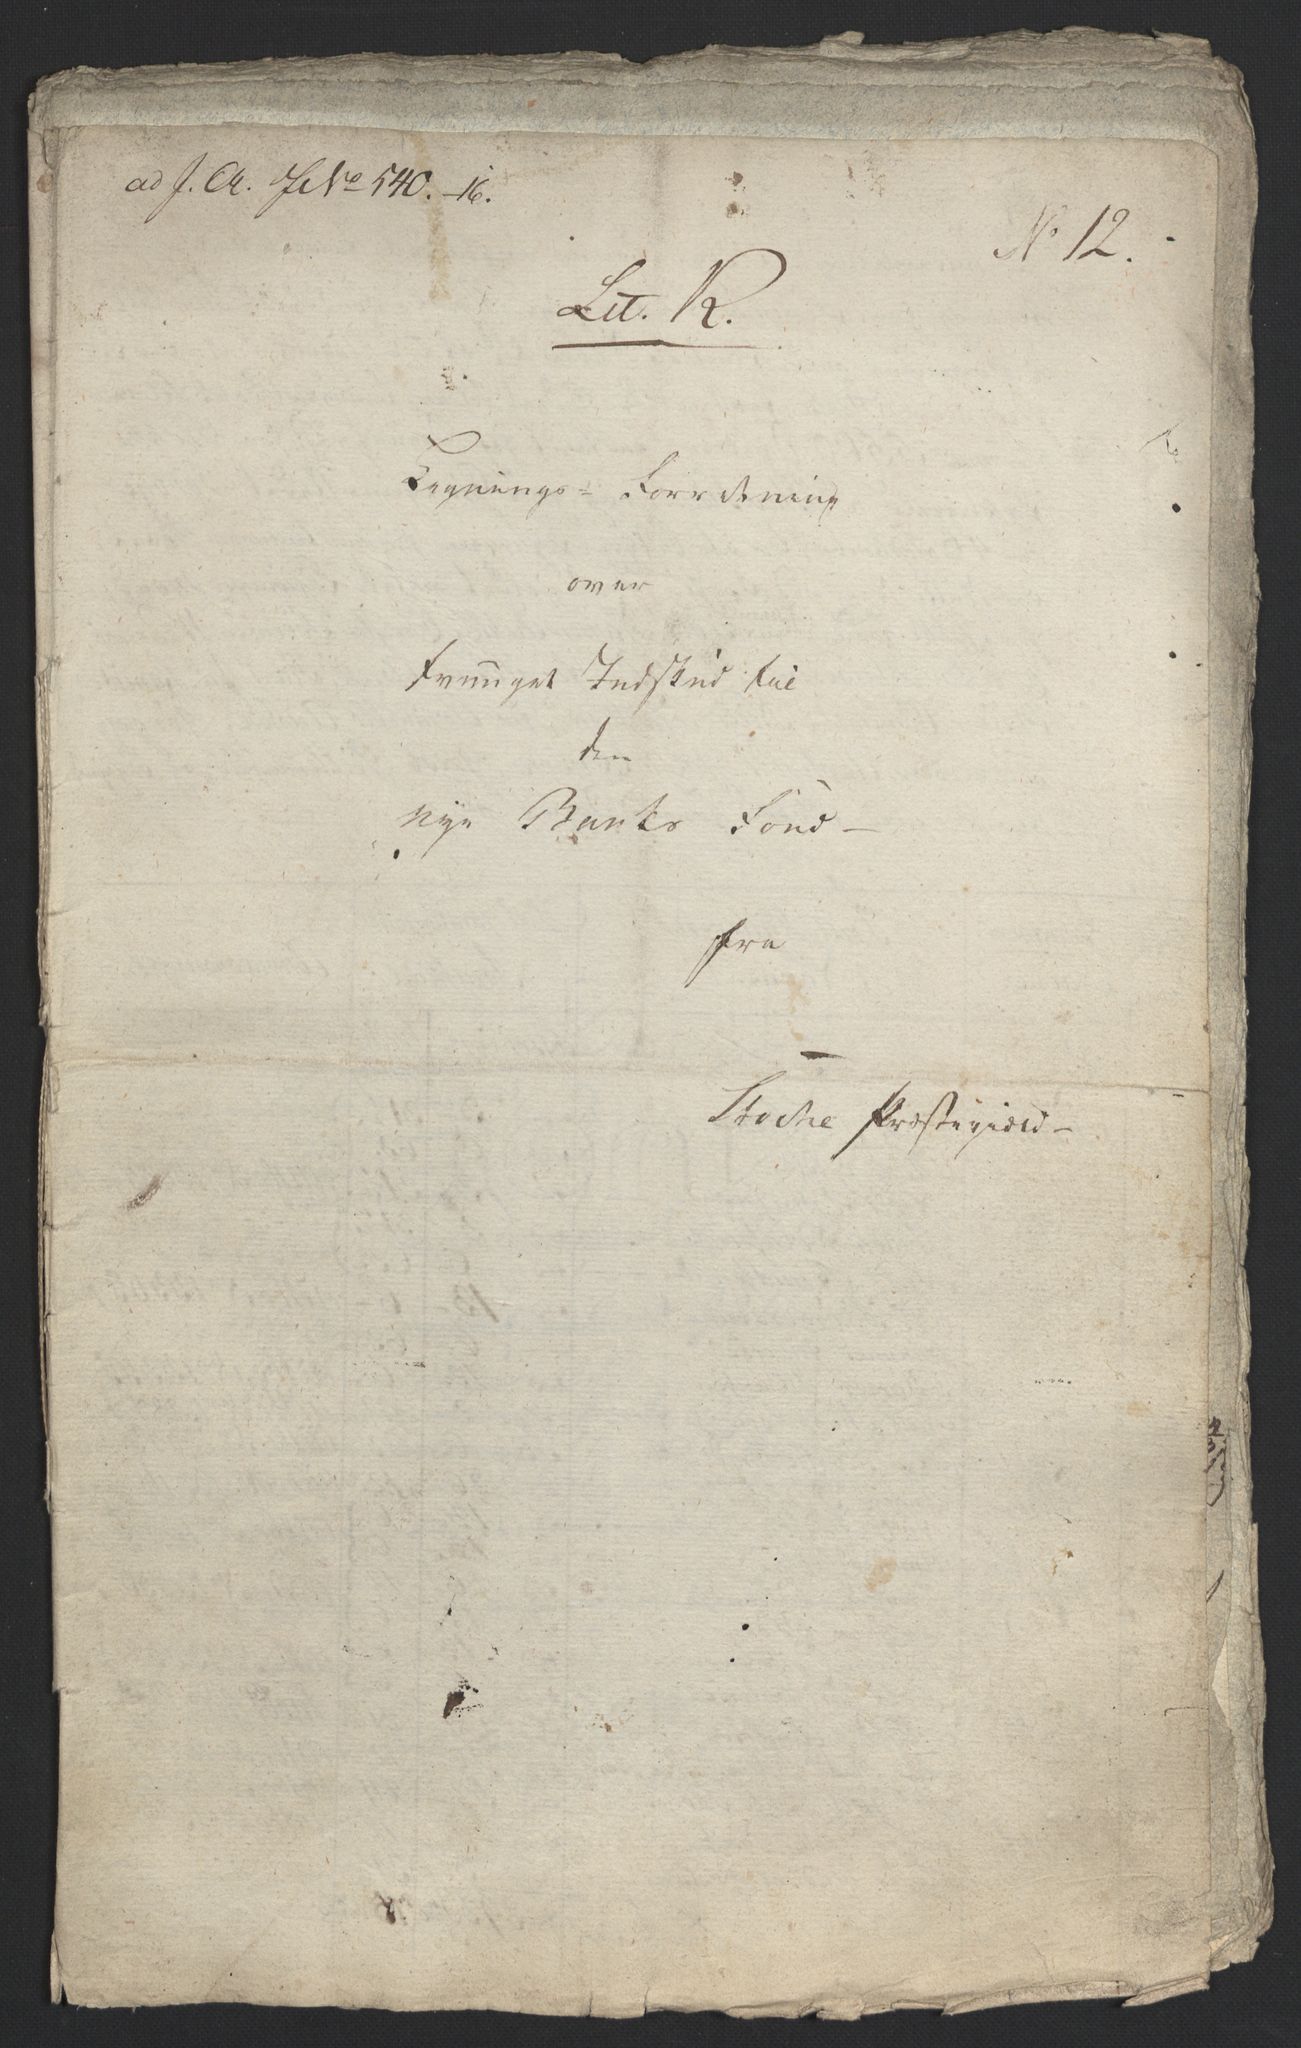 ad J. Cr. J No 540.-16.
No 12.
Lit. R.
Legnings- Forretning
over
tvunget Indskud til
den
nye Banks Fond-
fra
Stocke Præstegield-